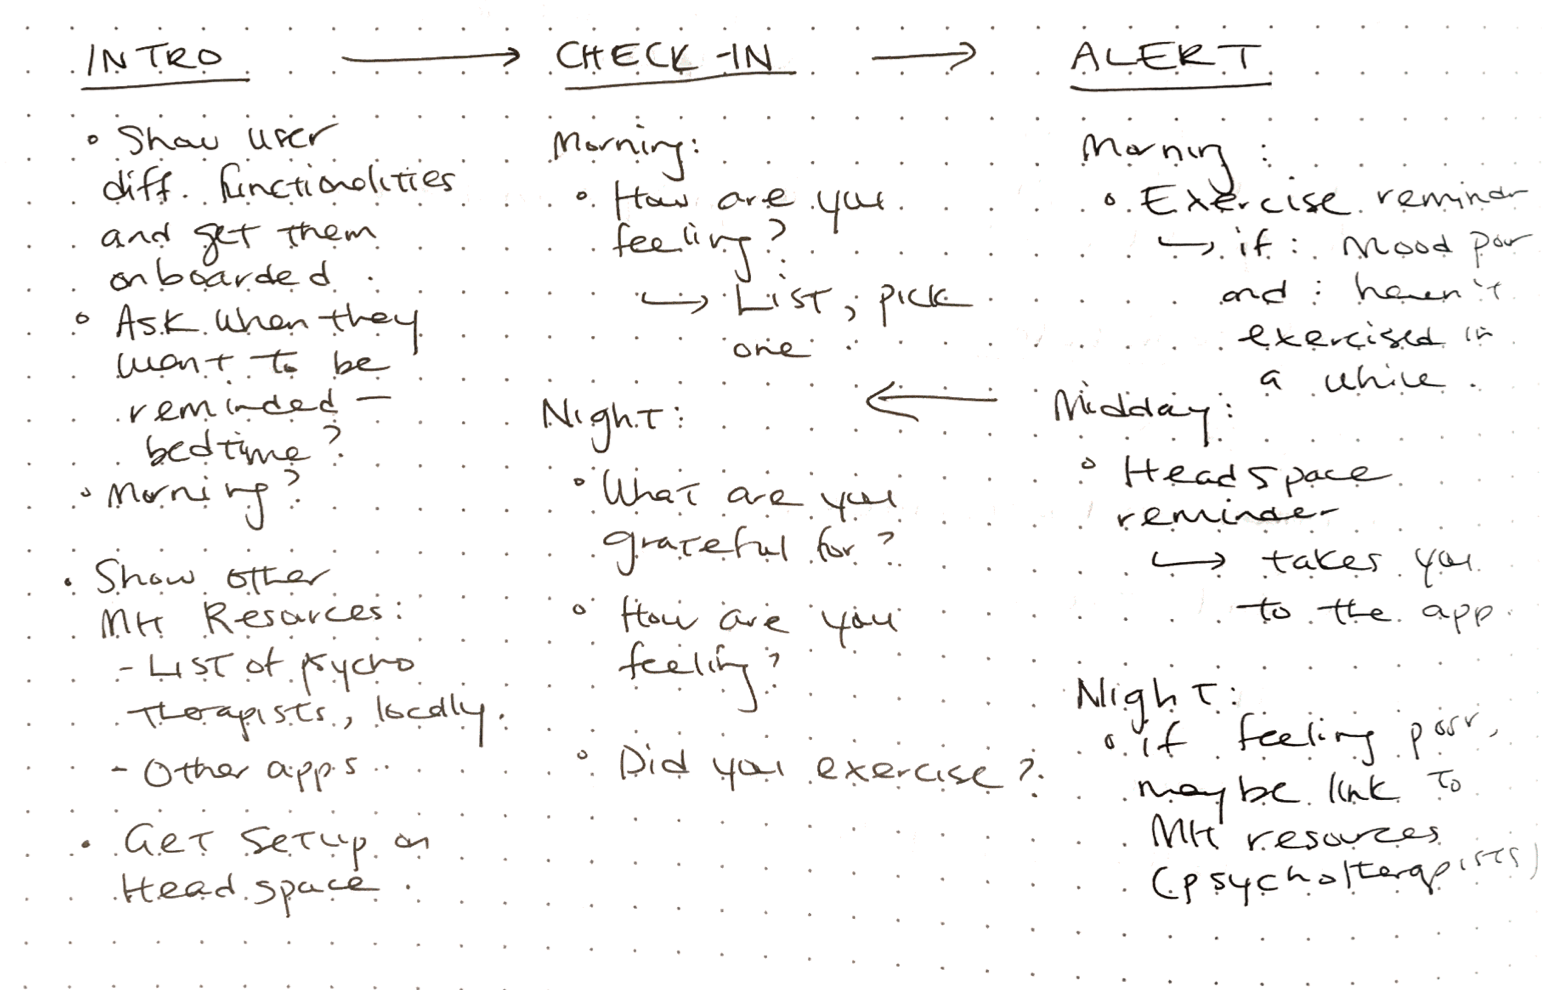 INTRO
• Show user
diff. functionalities
and get them
onboarded.
• Ask when they
want to be
reminded —
bedtime?
• Morning?
• Show other
MH Resources:
- List of psycho
therapists, locally.
- Other apps
• Get setup on
Headspace.
CHECK-IN
Morning:
• How are you
feeling?
↳ List, pick
one
Night:
• What are you
grateful for?
• How are you
feeling?
• Did you exercise?
ALERT
Morning:
• Exercise reminder
↳ if: mood poor
and: haven't
exercised in
a while.
Midday:
• Headspace
reminder
↳ takes you
to the app.
Night:
• if feeling poor,
maybe link to
MH resources
(psycho/therapists)